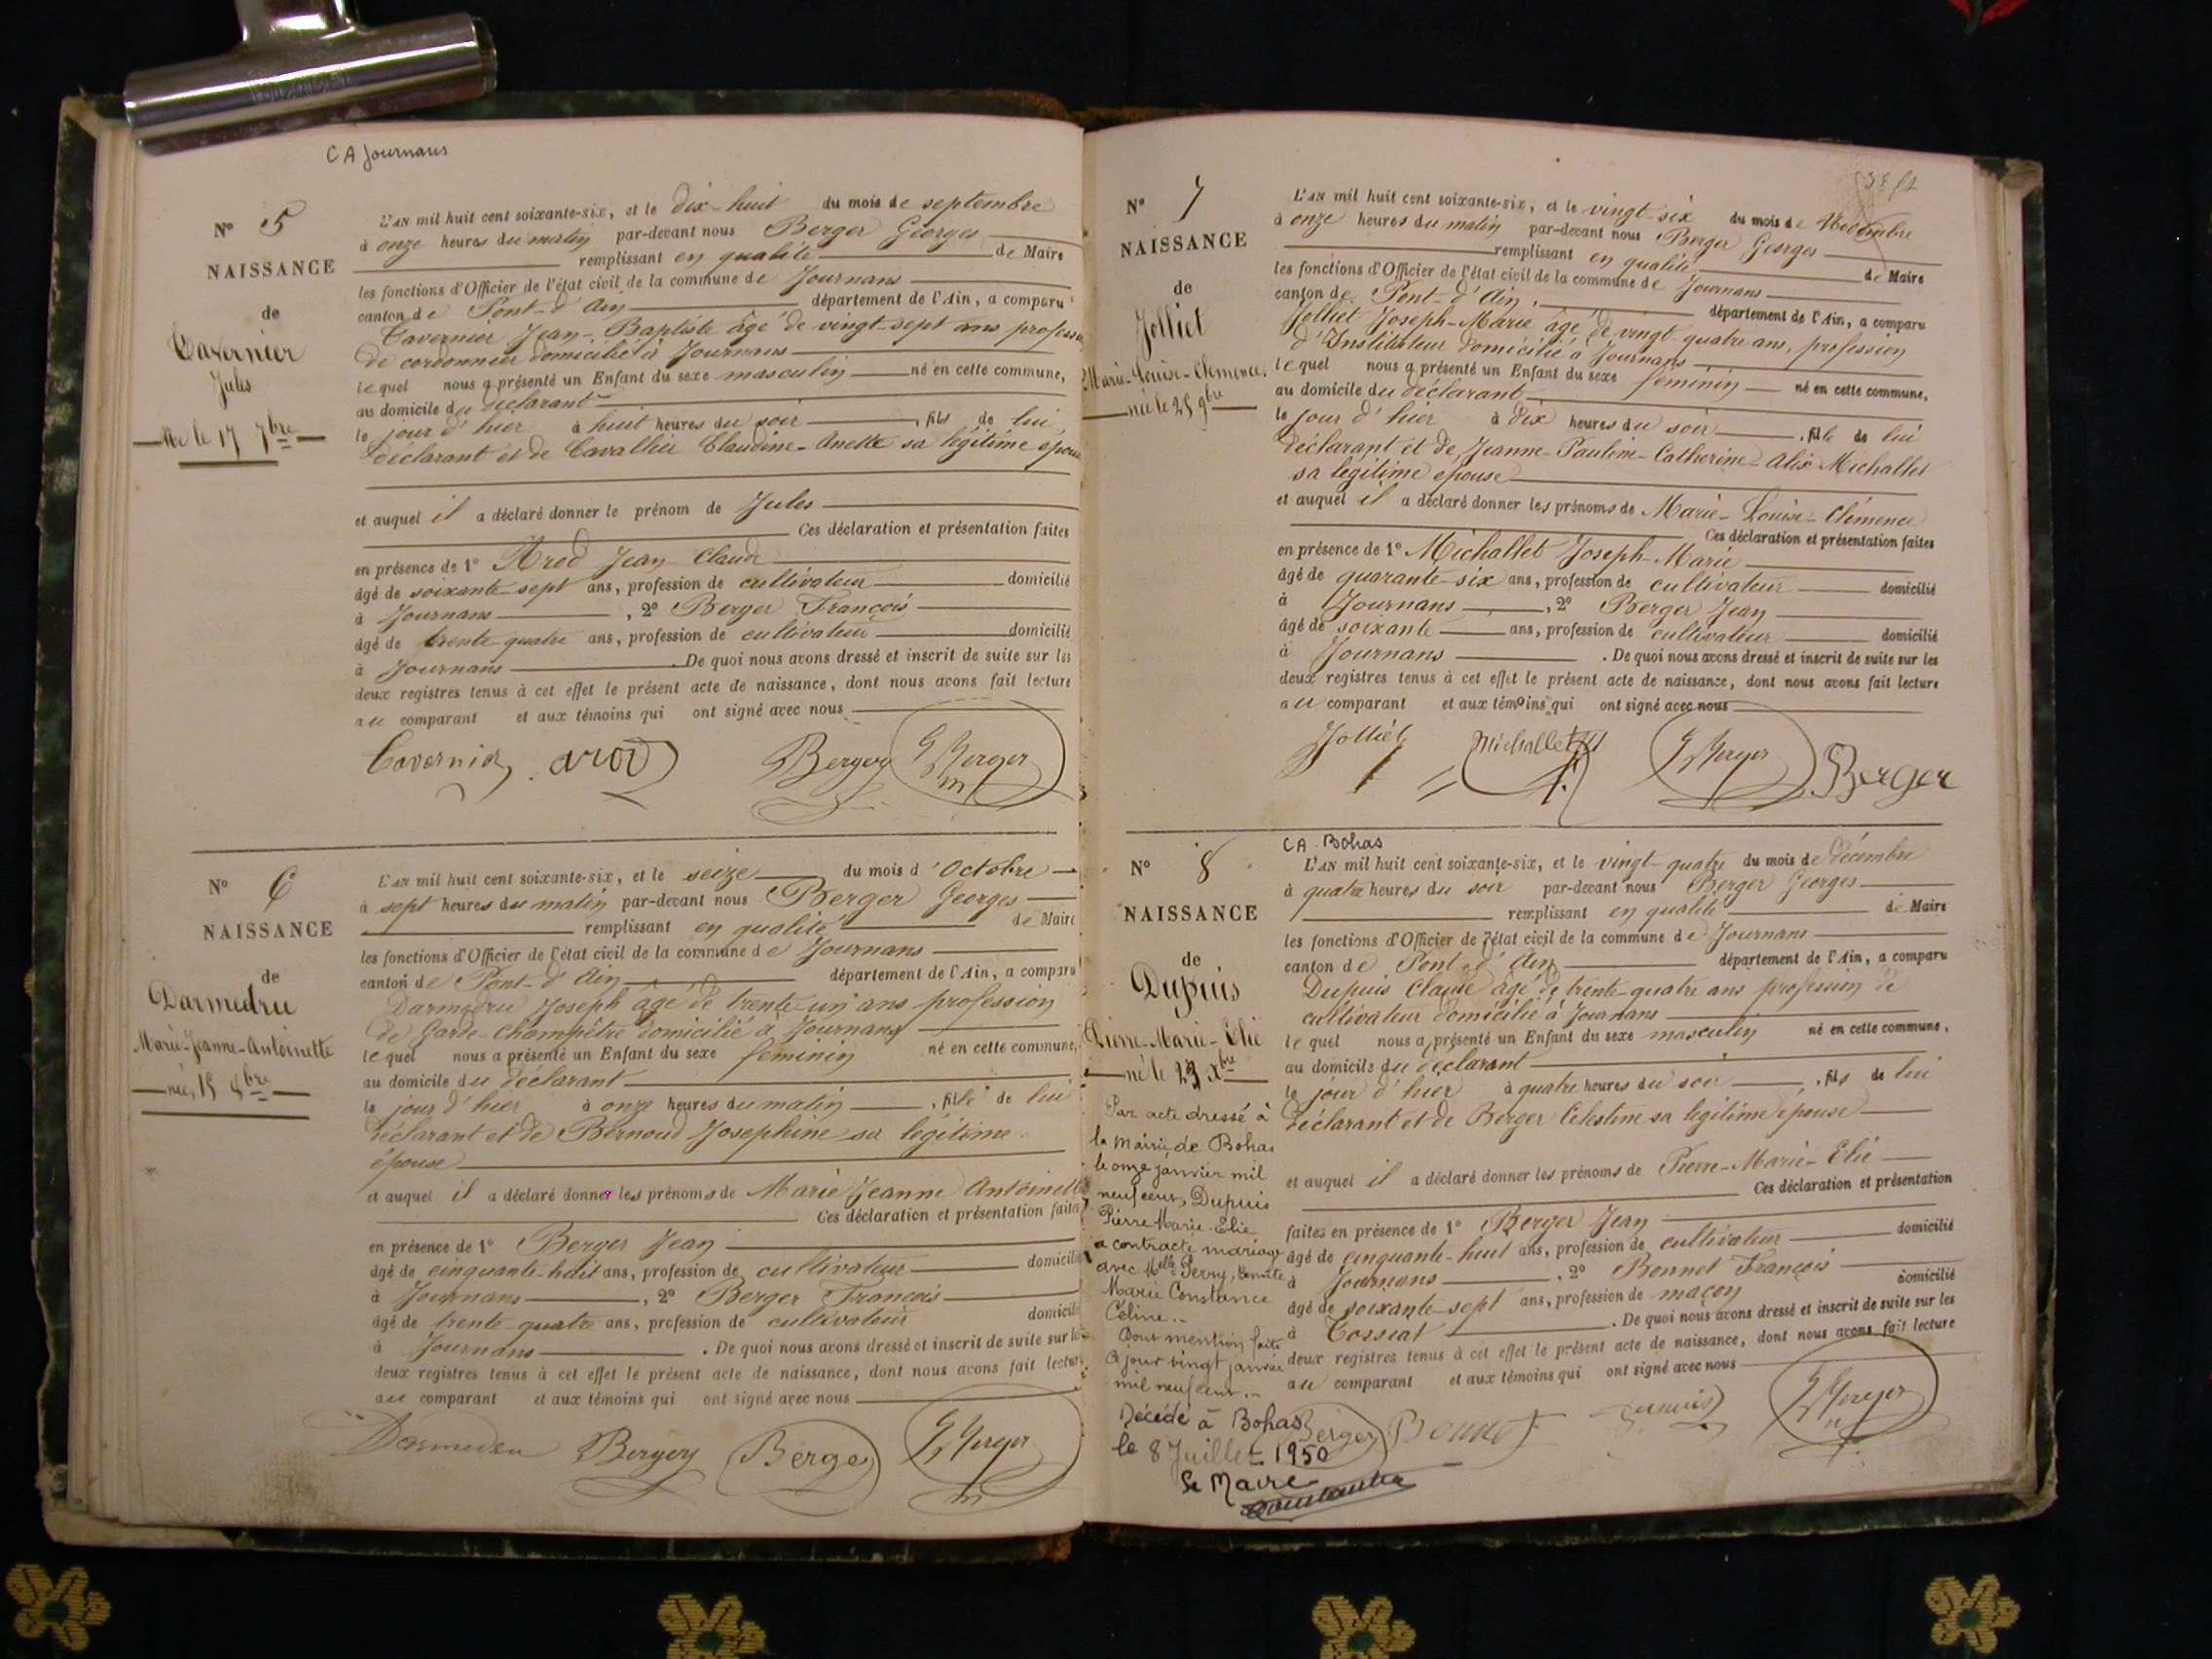 CA Journans
N° 5
NAISSANCE
de
Tavernier
Jules
Né le 17 7bre
L'AN mil huit cent soixante-six, et le dix-huit du mois de septembre
à onze heures du matin par-devant nous Berger Georges
remplissant en qualité de Maire
les fonctions d'Officier de l'état civil de la commune de Journans
canton de Pont-d'Ain département de l'Ain, a comparu
Tavernier Jean-Baptiste âgé de vingt-sept ans profession
de cordonnier domicilié à Journans
lequel nous a présenté un Enfant du sexe masculin né en cette commune,
au domicile du déclarant
le jour d'hier à huit heures du soir, fils de lui
déclarant et de Cavallier Claudine-Anette sa légitime épouse
et auquel il a déclaré donner le prénom de Jules
Ces déclaration et présentation faites
en présence de 1° Arod Jean-Claude
âgé de soixante-sept ans, profession de cultivateur domicilié
à Journans, 2° Berger François
âgé de trente-quatre ans, profession de cultivateur domicilié
à Journans. De quoi nous avons dressé et inscrit de suite sur les
deux registres tenus à cet effet le présent acte de naissance, dont nous avons fait lecture
au comparant et aux témoins qui ont signé avec nous
Tavernier arod Berger G Berger
N° 6
NAISSANCE
de
Darmedru
Marie-Jeanne-Antoinette
née, 15 8bre
L'AN mil huit cent soixante-six, et le seize du mois d'Octobre
à sept heures du matin par-devant nous Berger Georges
remplissant en qualité de Maire
les fonctions d'Officier de l'état civil de la commune de Journans
canton de Pont-d'Ain département de l'Ain, a comparu
Darmedru Joseph âgé de trente-un ans profession
de Garde-Champêtre domicilié à Journans
lequel nous a présenté un Enfant du sexe féminin né en cette commune,
au domicile du déclarant
le jour d'hier à onze heures du matin, fille de lui
déclarant et de Bernoud Josephine sa légitime
épouse
et auquel il a déclaré donner les prénoms de Marie Jeanne Antoinette
Ces déclaration et présentation faites
en présence de 1° Berger Jean
âgé de cinquante-huit ans, profession de cultivateur domicilié
à Journans, 2° Berger François
âgé de trente-quatre ans, profession de cultivateur domicilié
à Journans. De quoi nous avons dressé et inscrit de suite sur les
deux registres tenus à cet effet le présent acte de naissance, dont nous avons fait lecture
au comparant et aux témoins qui ont signé avec nous
Darmedru Berger Berger G Berger
N° 7
NAISSANCE
de
Jolliet
Marie-Louise-Clémence
née le 25 9bre
L'AN mil huit cent soixante-six, et le vingt-six du mois de Novembre
à onze heures du matin par-devant nous Berger Georges
remplissant en qualité de Maire
les fonctions d'Officier de l'état civil de la commune de Journans
canton de Pont-d'Ain, département de l'Ain, a comparu
Jolliet Joseph-Marie âgé de vingt-quatre ans, profession
d'Instituteur domicilié à Journans
lequel nous a présenté un Enfant du sexe féminin né en cette commune,
au domicile du déclarant
le jour d'hier à dix heures du soir, fille de lui
déclarant et de Jeanne-Pauline-Catherine-Alix Michallet
sa légitime épouse
et auquel il a déclaré donner les prénoms de Marie-Louise-Clémence
Ces déclaration et présentation faites
en présence de 1° Michallet Joseph-Marie
âgé de quarante-six ans, profession de cultivateur domicilié
à Journans, 2° Berger Jean
âgé de soixante ans, profession de cultivateur domicilié
à Journans. De quoi nous avons dressé et inscrit de suite sur les
deux registres tenus à cet effet le présent acte de naissance, dont nous avons fait lecture
au comparant et aux témoins qui ont signé avec nous
Jolliet Michallet G Berger Berger
CA Bohas
N° 8
NAISSANCE
de
Dupuis
Pierre-Marie-Elie
né le 23 Xbre
Par acte dressé à
la Mairie de Bohas
le onze janvier mil
neuf cent, Dupuis
Pierre Marie-Elie
a contracté mariage
avec Melle Perny,
Marie Constance
Céline.-
Dont mention faite
ce jour vingt janvier
mil neuf cent.-
Décédé à Bohas
le 8 Juillet 1950
Le Maire
L'AN mil huit cent soixante-six, et le vingt-quatre du mois de décembre
à quatre heures du soir par-devant nous Berger Georges
remplissant en qualité de Maire
les fonctions d'Officier de l'état civil de la commune de Journans
canton de Pont-d'Ain département de l'Ain, a comparu
Dupuis Claude âgé de trente-quatre ans profession de
cultivateur domicilié à Journans
lequel nous a présenté un Enfant du sexe masculin né en cette commune,
au domicile du déclarant
le jour d'hier à quatre heures du soir, fils de lui
déclarant et de Berger Célestine sa légitime épouse
et auquel il a déclaré donner les prénoms de Pierre-Marie-Elie
Ces déclaration et présentation
faites en présence de 1° Berger Jean
âgé de cinquante-huit ans, profession de cultivateur domicilié
à Journans, 2° Bonnet François
âgé de soixante-sept ans, profession de maçon domicilié
à Tossiat. De quoi nous avons dressé et inscrit de suite sur les
deux registres tenus à cet effet le présent acte de naissance, dont nous avons fait lecture
au comparant et aux témoins qui ont signé avec nous
Berger Bonnet Dupuis G Berger